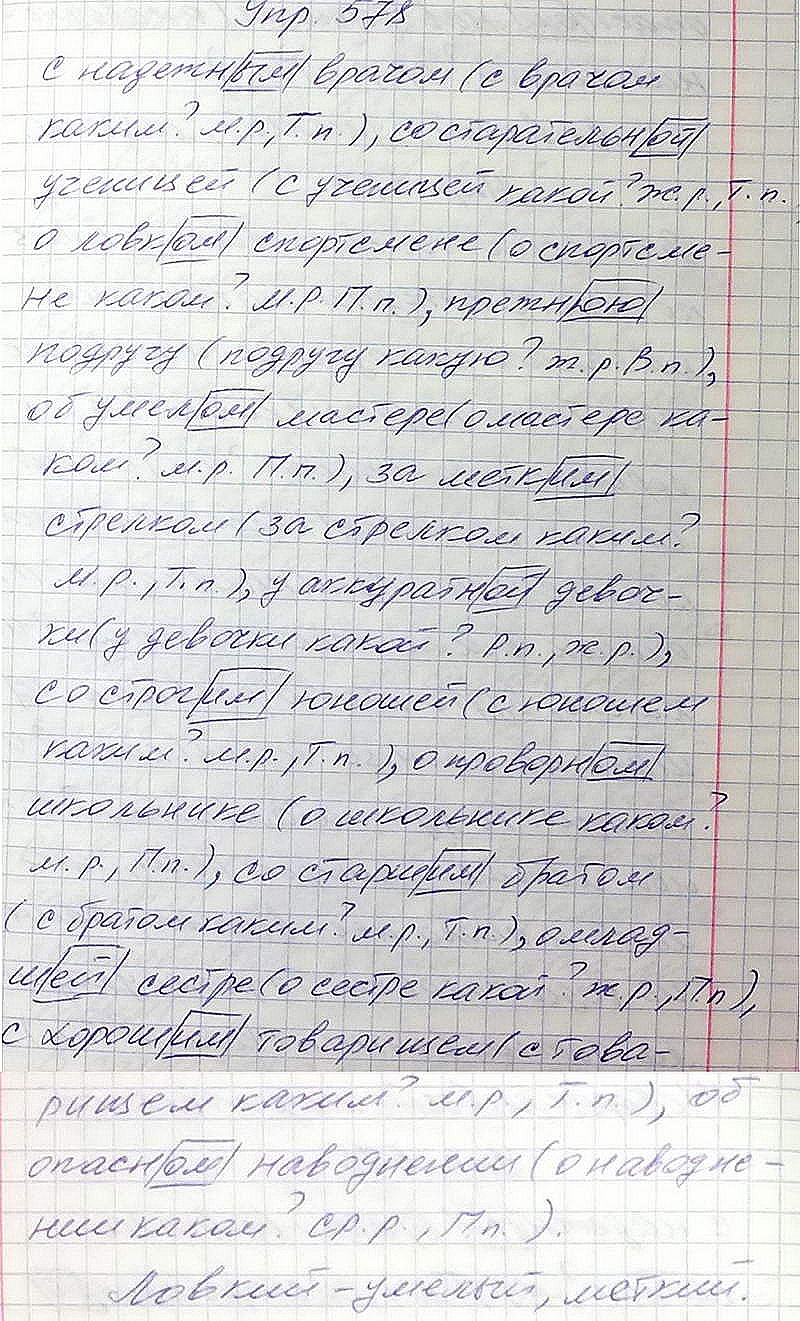 Упр. 578
с надежным врачом (с врачом
каким? м.р., Т.п.), со старательной
ученицей (с ученицей какой? ж.р., Т.п.
о ловком спортсмене (о спортсме-
не каком? м.р. П.п.), прежнюю
подругу (подругу какую? ж.р. В.п.),
об умелом мастере (о мастере ка-
ком? м.р. П.п.), за метким
стрелком (за стрелком каким?
м.р., Т.п.), у аккуратной девоч-
ки (у девочки какой? Р.п., ж.р.),
со строгим юношей (с юношем
каким? м.р., Т.п.), о проворном
школьнике (о школьнике каком?
м.р., П.п.), со старшим братом
(с братом каким? м.р., Т.п.), о млад-
шей сестре (о сестре какой? ж.р., П.п),
с хорошим товарищем (с това-
рищем каким? м.р., Т.п.), об
опасном наводнении (о наводне-
нии каком? ср.р., П.п.).
Ловкий - умелый, меткий.